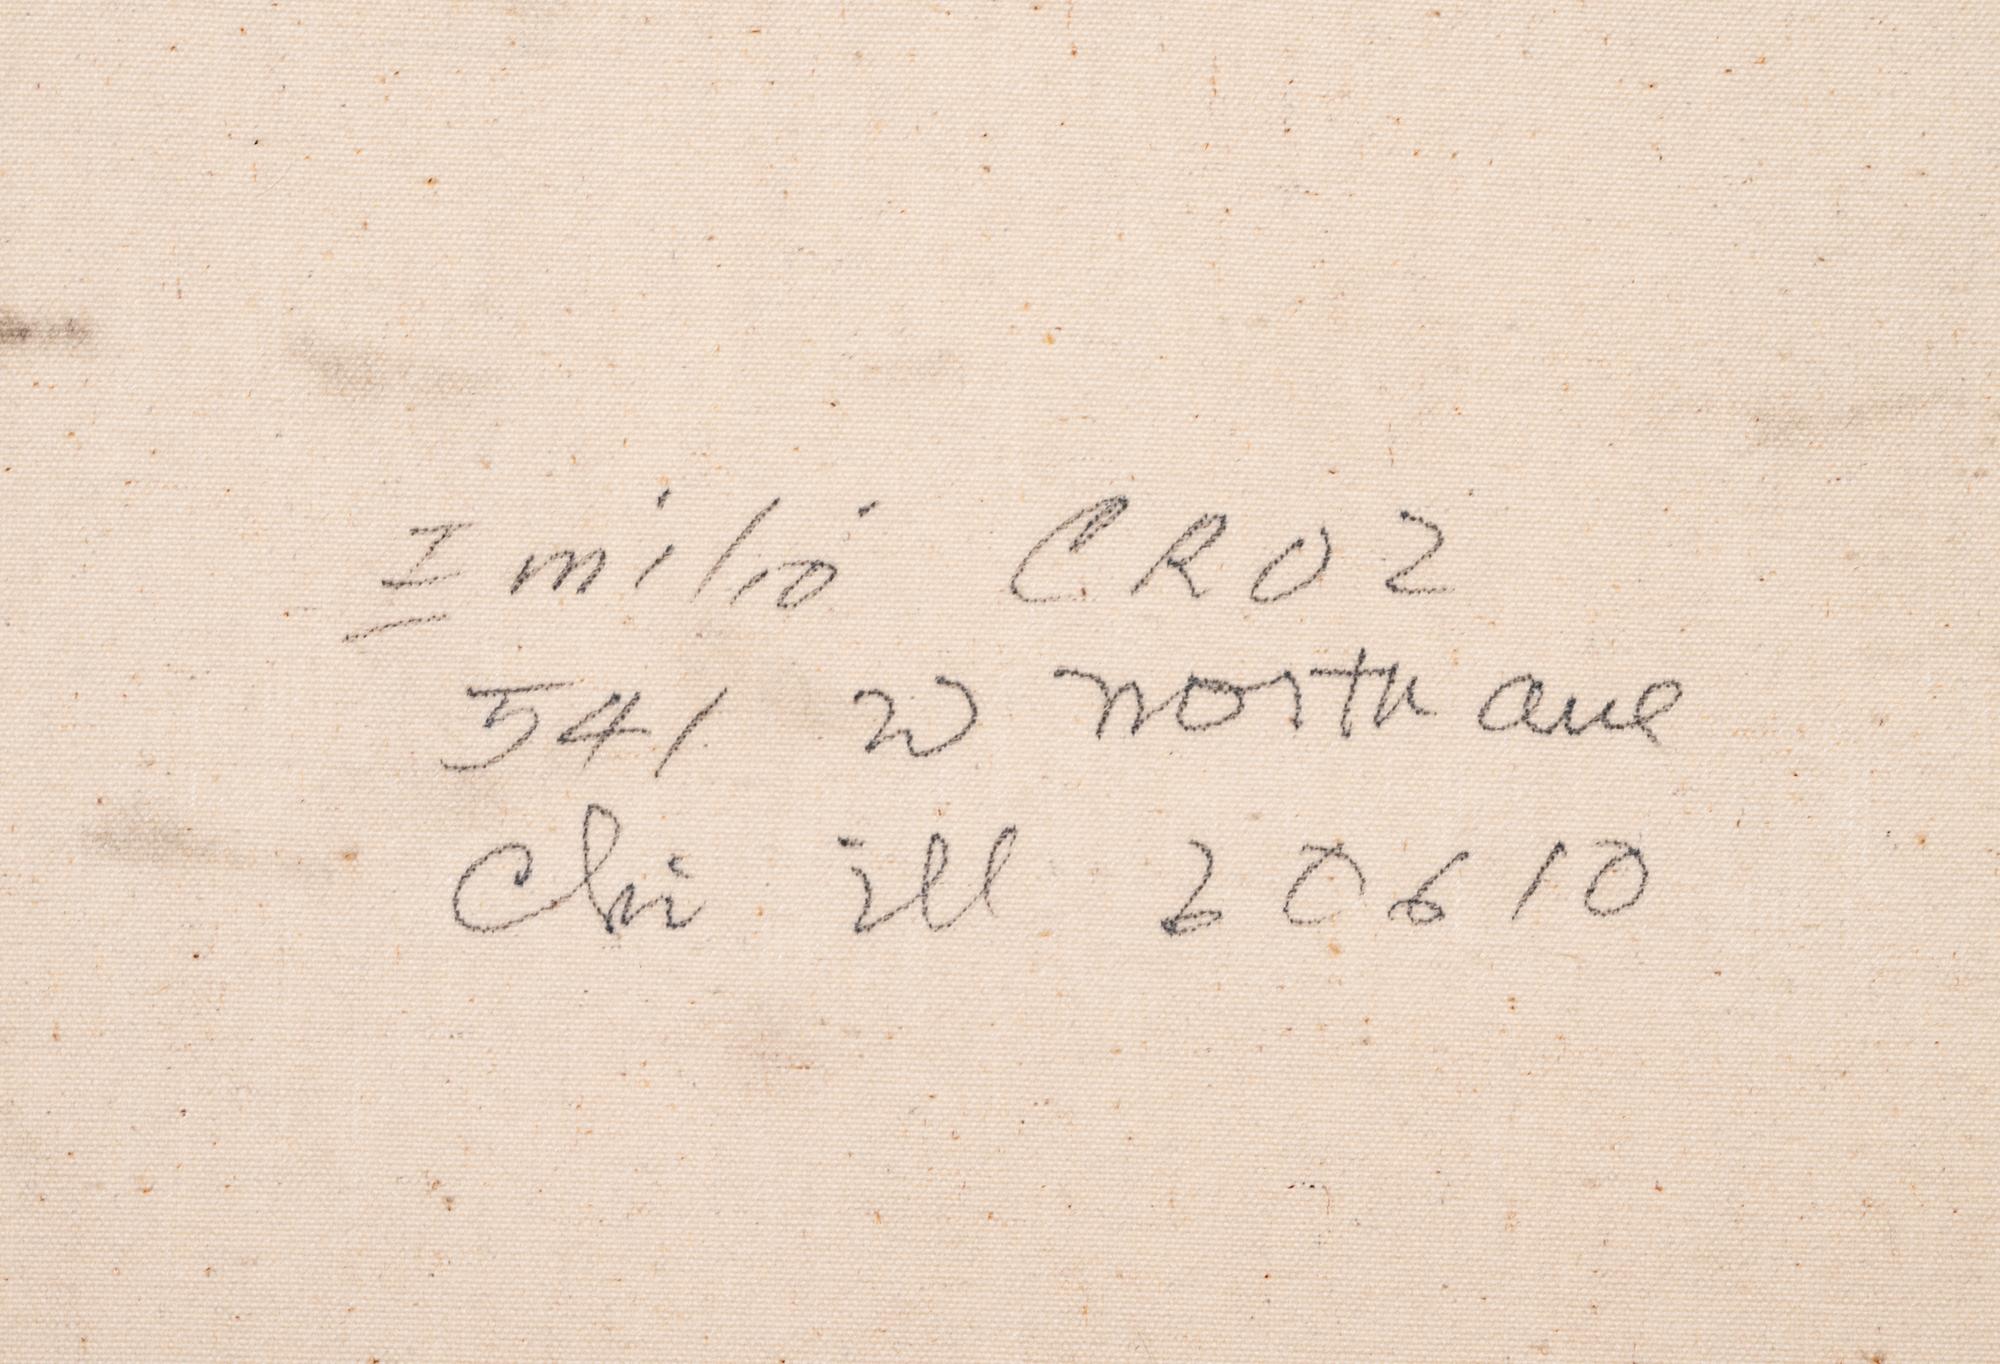 Emilio CROZ
541 W north ave
Chi ill 20610